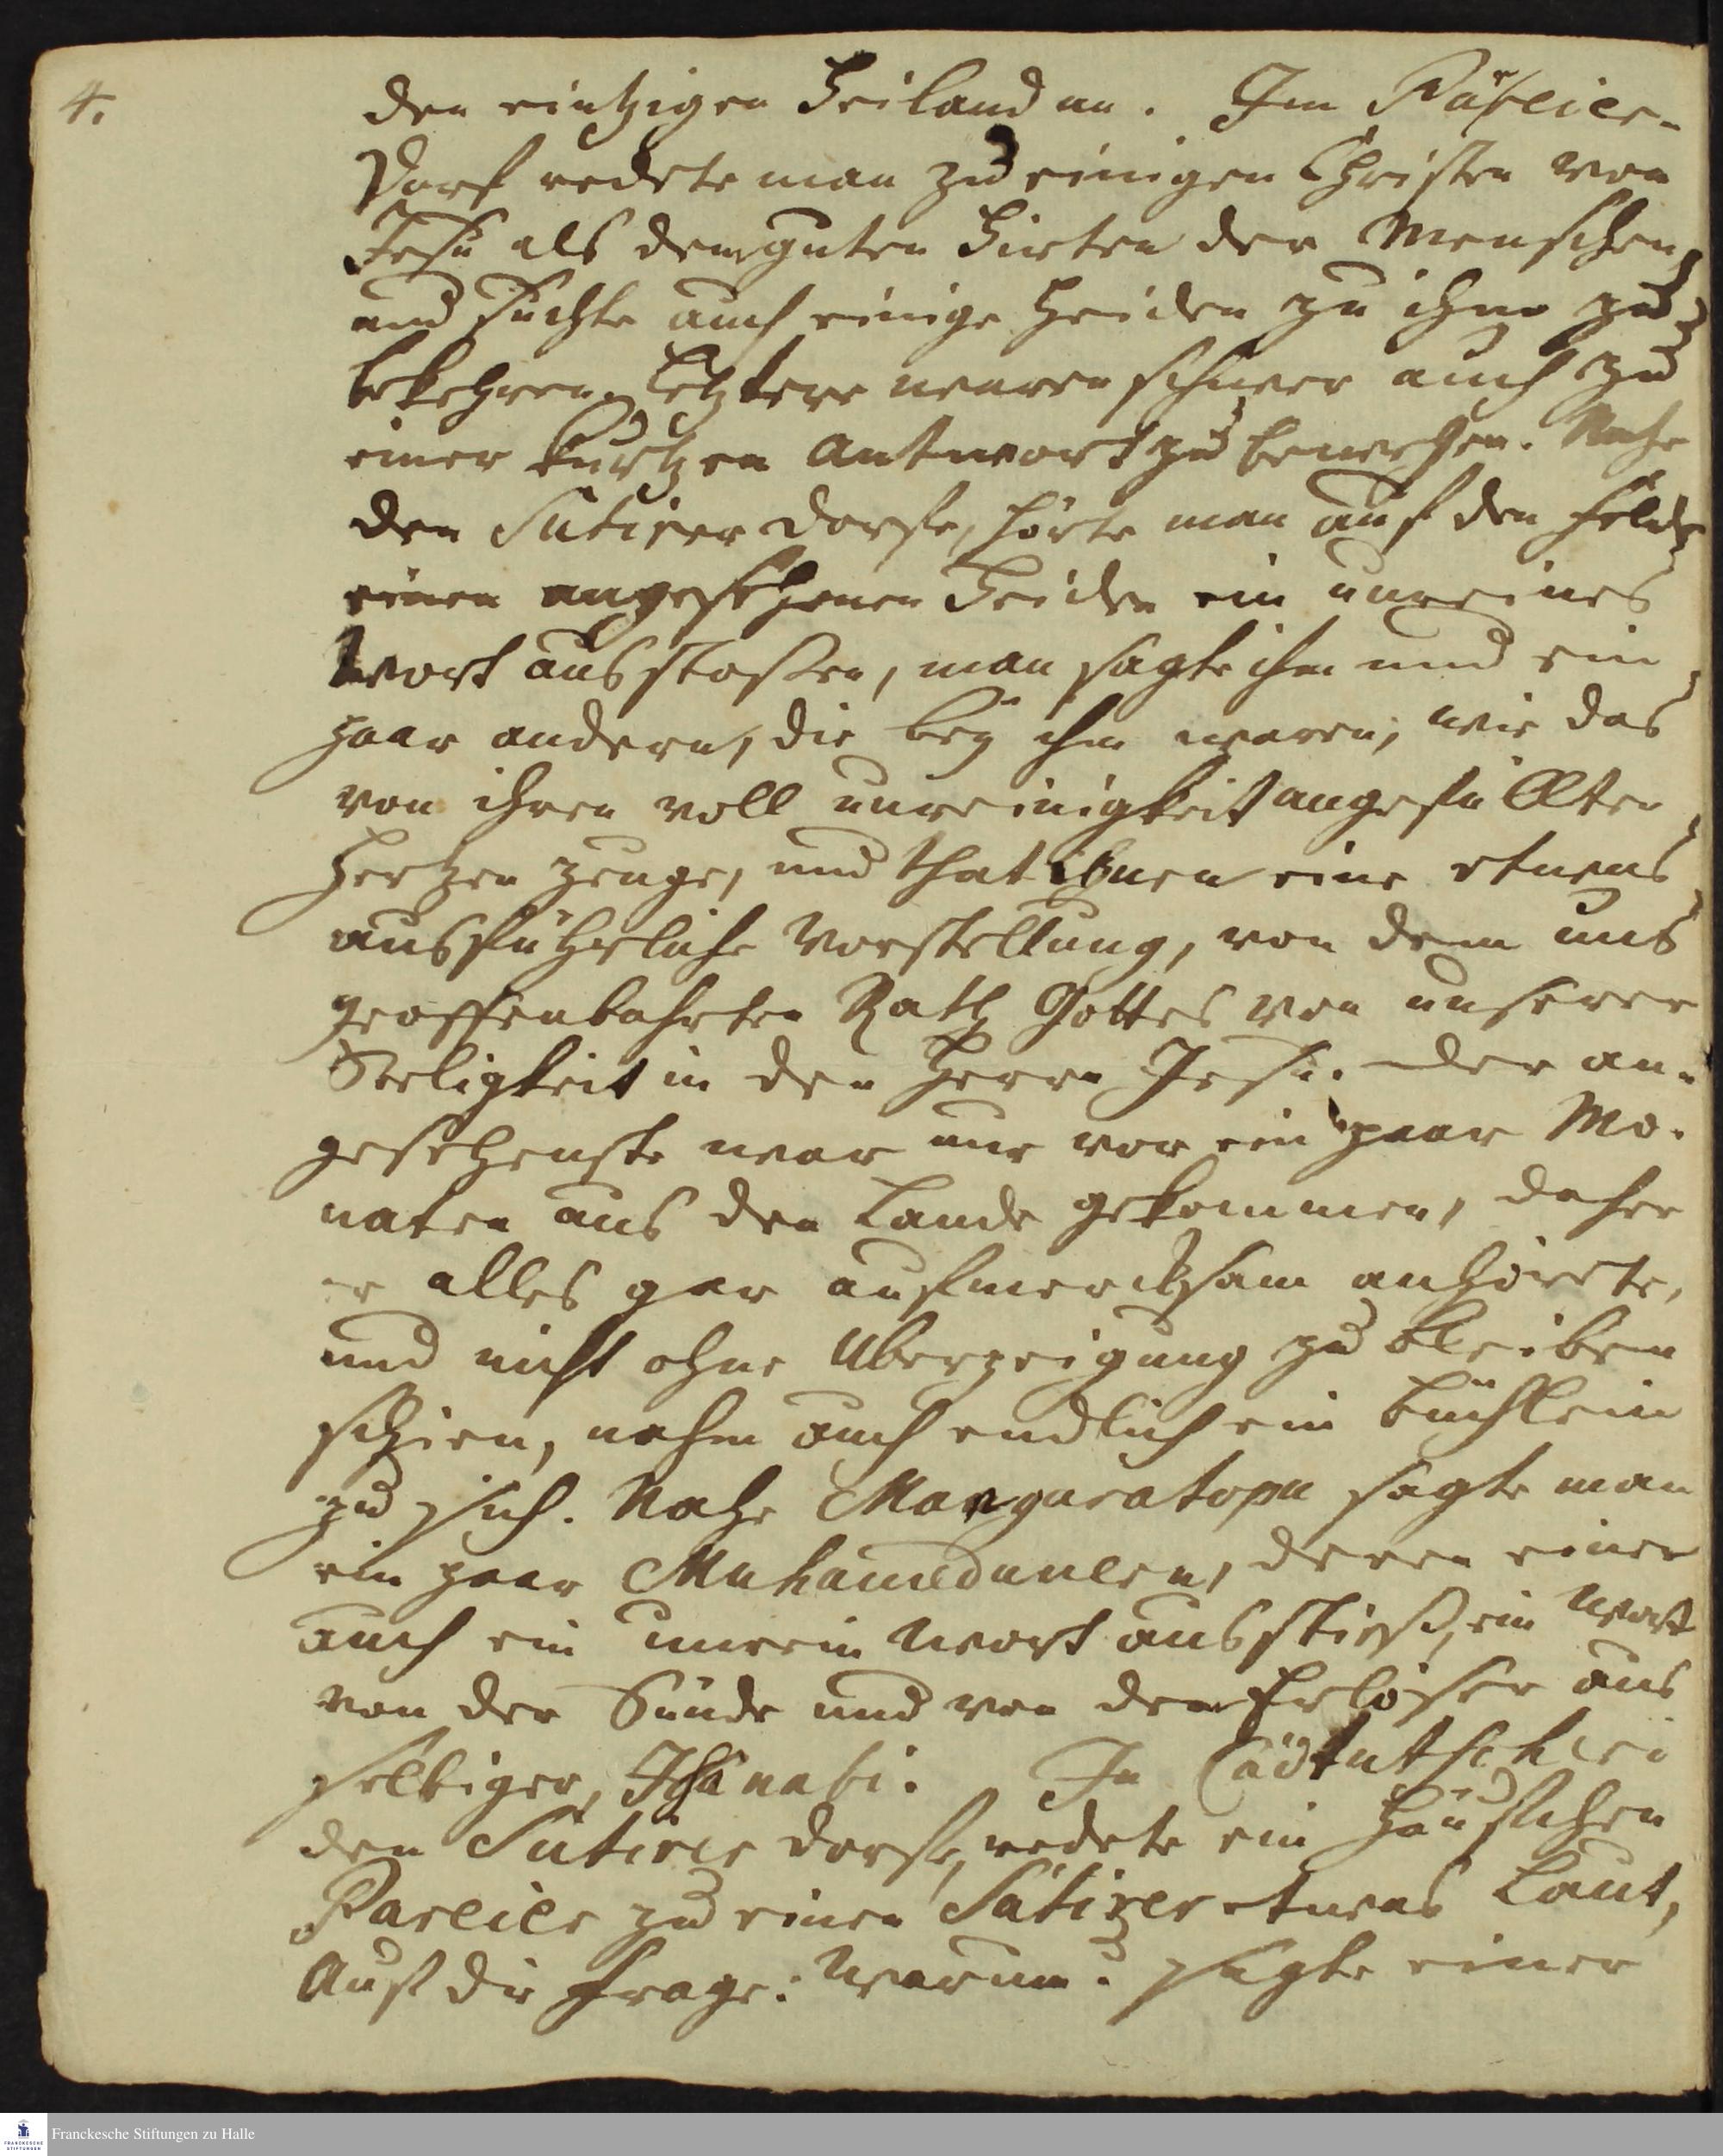 4.
den eintzigen Heiland an. Im Päreier-
Dorf redete man zu einigen Christen von
Jesu als dem guten Hirten der Menschen,
und suchte auch einige Heiden zu ihm zu
bekehren. Letztere waren schwer auch zu
einer kurtzen Antwort zu bewegen. Nahe
den Sutirer dorfe, hörte man auf den Felde
einen angesehenen Heiden ein unreines
Wort ausstoßen, man sagte ihm und ein
paar andern, die bey ihm waren, wie das
von ihren voll unreinigkeit angefüllten
Hertzen zeuge, und that ihnen eine etwas
ausführliche Vorstellung, von dem uns
geoffenbahrten Rath Gottes von unserer
Seeligkeit in den Herrn Jesu. Der an-
gesehenste war nur vor ein paar Mo-
naten aus den Lande gekommen, daher
er alles gar aufmercksam anhörete,
und nicht ohne Uberzeigung zu bleiben
schien, nahm auch endlich ein büchlein
zu sich. Nahe Mangaratopu sagte man
ein paar Muhamedanern, deren einer
auch ein unrein Wort ausstieß, ein Wort
von der Sünde und von dem Erlöser aus
selbiger, Isa nabi. In Cadtutscheri
den Sutirer dorfe, redete ein Häuflchen
Pareier zu einen Sutirer etwas Laut,
Auf die Frage: Warum? sagte einer
Franckesche Stiftungen zu Halle